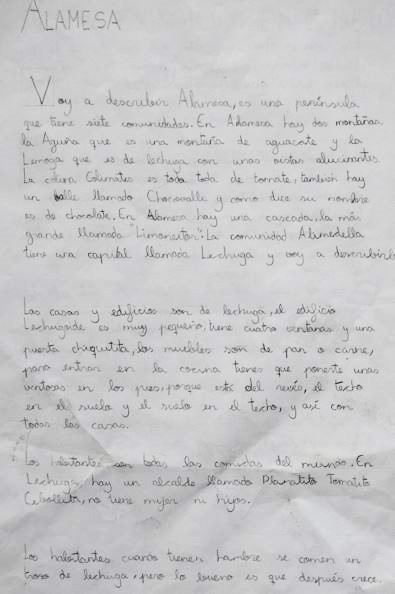 ALAMESA
Voy a describir Alamesa, es una península
que tiene siete comunidades. En Alamesa hay dos montañas
la Aguña que es una montaña de aguacate y la
que es de lechuga con unas vistas alucinantes.
La colina es toda toda de tomate, también hay
un valle llamado Chocovalle y como dice su nombre
es de chocolate. En Alamesa hay una cascada, la más
grande llamada "Limonestor". La comunidad
tiene una capital llamada Lechuga y voy a describirla
Las casas y edificios son de lechuga, el edificio
es muy pequeño, tiene cuatro ventanas y una
puerta chiquitita, los muebles son de pan o carne,
para entrar en la cocina tienes que ponerte unas
ventosas en los pies, porque está del revés, el techo
en el suelo y el suelo en el techo, y así con
todas las casas.
Los habitantes son todas las comidas del mundo. En
Lechuga hay un alcalde llamado Platatito Tomatito
Cebollita, no tiene mujer ni hijos.
Los habitantes cuando tienen hambre se comen un
troso de lechuga, pero lo bueno es que después crece.